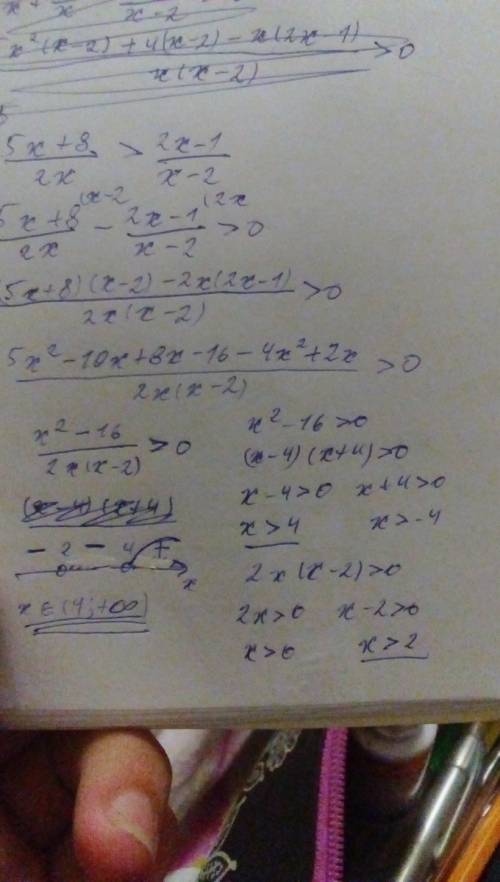 x²(x-2) + 4(x-2) - x(2x-1) / x(x-2) > 0
5x+8 / 2x > 2x-1 / x-2
5x+8 / 2x (x-2 - 2x-1 / x-2 (2x > 0
(5x+8)(x-2) - 2x(2x-1) / 2x(x-2) > 0
5x² - 10x + 8x - 16 - 4x² + 2x / 2x(x-2) > 0
x² - 16 / 2x(x-2) > 0
(x-4)(x+4)
- 2 - 4 +
x
x ∈ (4; +∞)
x² - 16 > 0
(x-4)(x+4) > 0
x-4>0 x+4>0
x>4 x>-4
2x(x-2)>0
2x>0 x-2>0
x>0 x>2